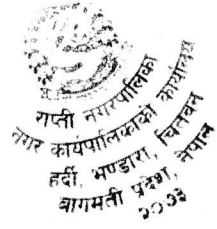 राप्ती नगरपालिका
नगर कार्यपालिकाको कार्यालय
हर्दी, भण्डारा, चितवन
बागमती प्रदेश, नेपाल
२०७३